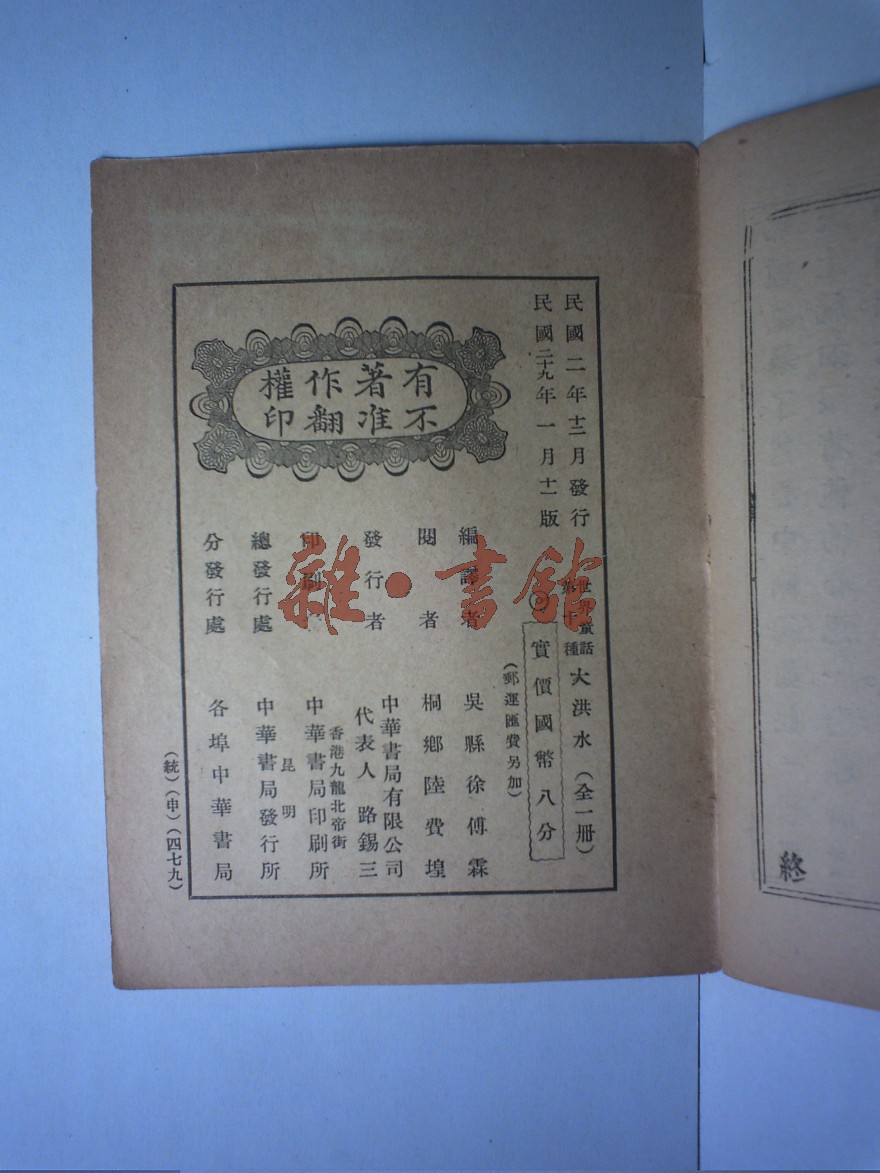 民國二年十二月發行
民國二十九年一月十一版
有著作權
不准翻印
世界童話
第十種
大洪水（全一冊）
實價國幣八分
（郵運匯費另加）
編譯者 吳縣徐傅霖
閱者 桐鄉陸費堭
發行者 中華書局有限公司
代表人 路錫三
香港九龍北帝街
印刷 中華書局印刷所
昆明
總發行處 中華書局發行所
分發行處 各埠中華書局
（統）（申）（四七九）
終
雜·書館